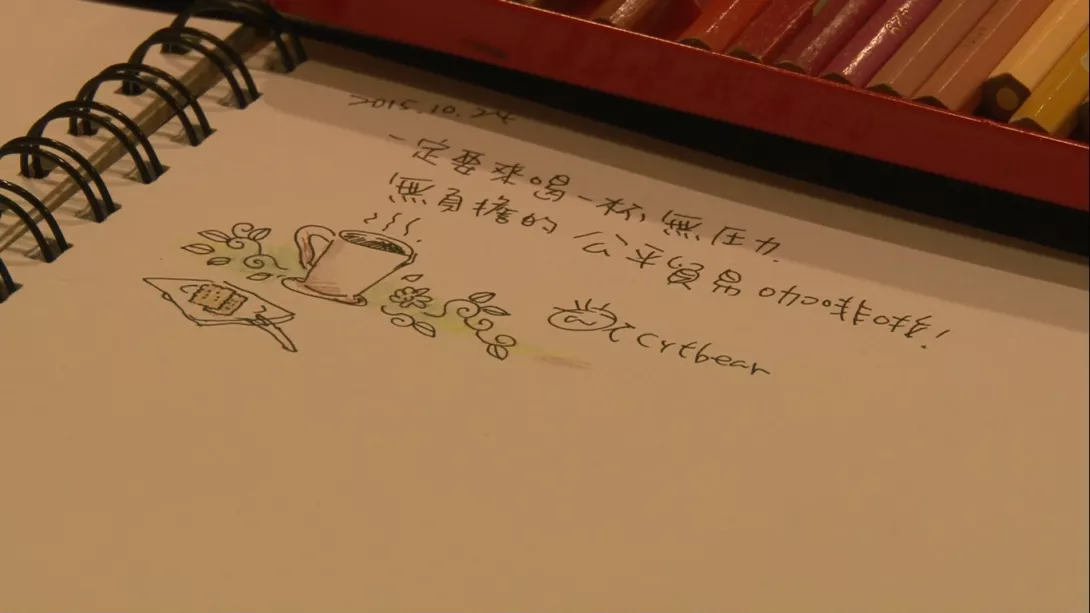 2015.10.24
一定要來喝一杯無壓力
無負擔的公平貿易咖啡呦!
ccrtbear